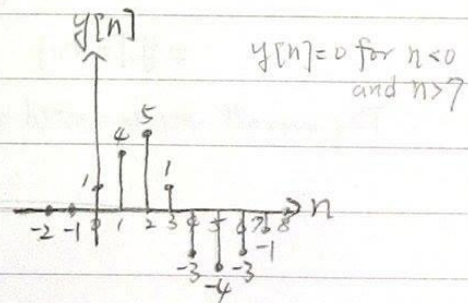 y[n]
y[n]=0 for n<0
and n>7
5
4
1
1
n
-2 -1 0 1 2 3 4 5 6 7 8
-1
-3
-3
-4